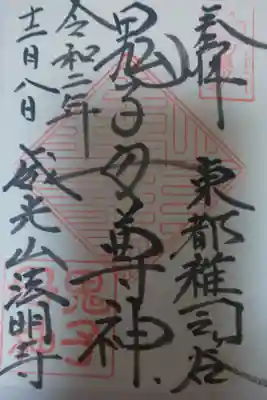 奉拝
東都雑司谷
鬼子母尊神
令和二年
十二月八日
威光山法明寺